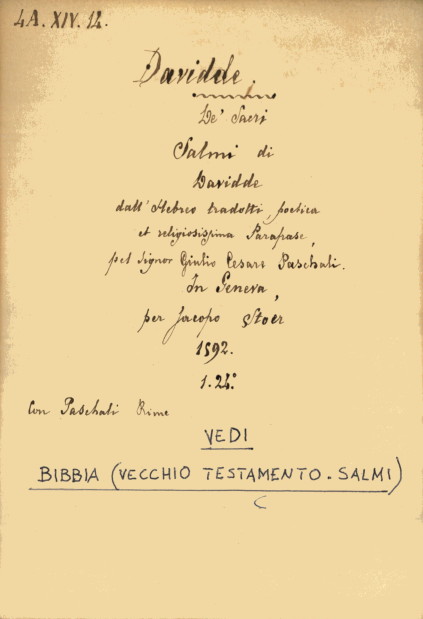 4A.XIV.12.
Davidde.
De' Sacri
Salmi di
Davidde
dall' Hebreo tradotti, poetica
et religiosissima Parafrase,
pel Signor Giulio Cesare Paschali.
In Geneva,
per Jacopo Stoer
1592.
1.24°.
Con Paschali Rime
VEDI
BIBBIA (VECCHIO TESTAMENTO. SALMI)